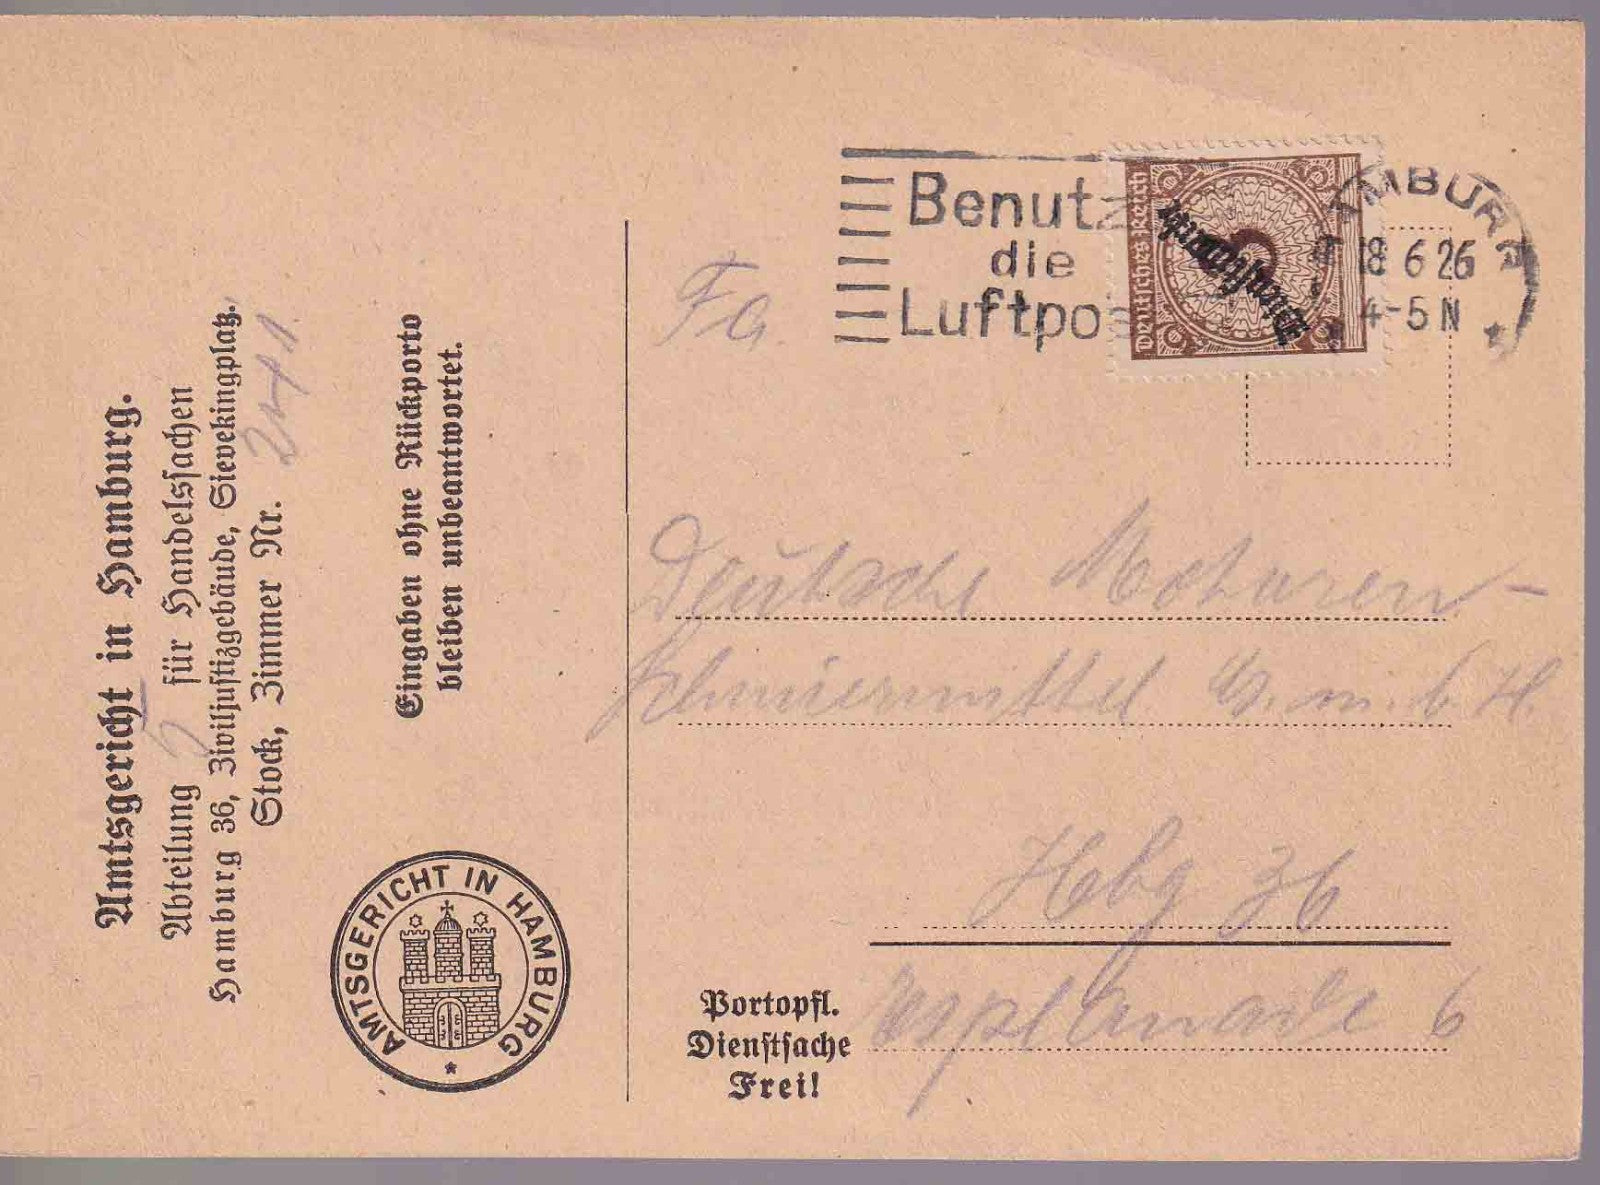 Amtsgericht in Hamburg.
Abteilung für Handelssachen
Hamburg 36, Ziviljustizgebäude, Sievekingplatz,
Stock, Zimmer Nr. 241.
Eingaben ohne Rückporto
bleiben unbeantwortet.
AMTSGERICHT IN HAMBURG
Benutz
die
Luftpos
Deutsches Reich
3
Dienstmarke
AMBURG
18 6 26
4-5 N
Deutsche Motoren-
Schmiermittel G. m. b. H.
Hbg 36
Esplanade 6
Portopfl.
Dienstsache
Frei!